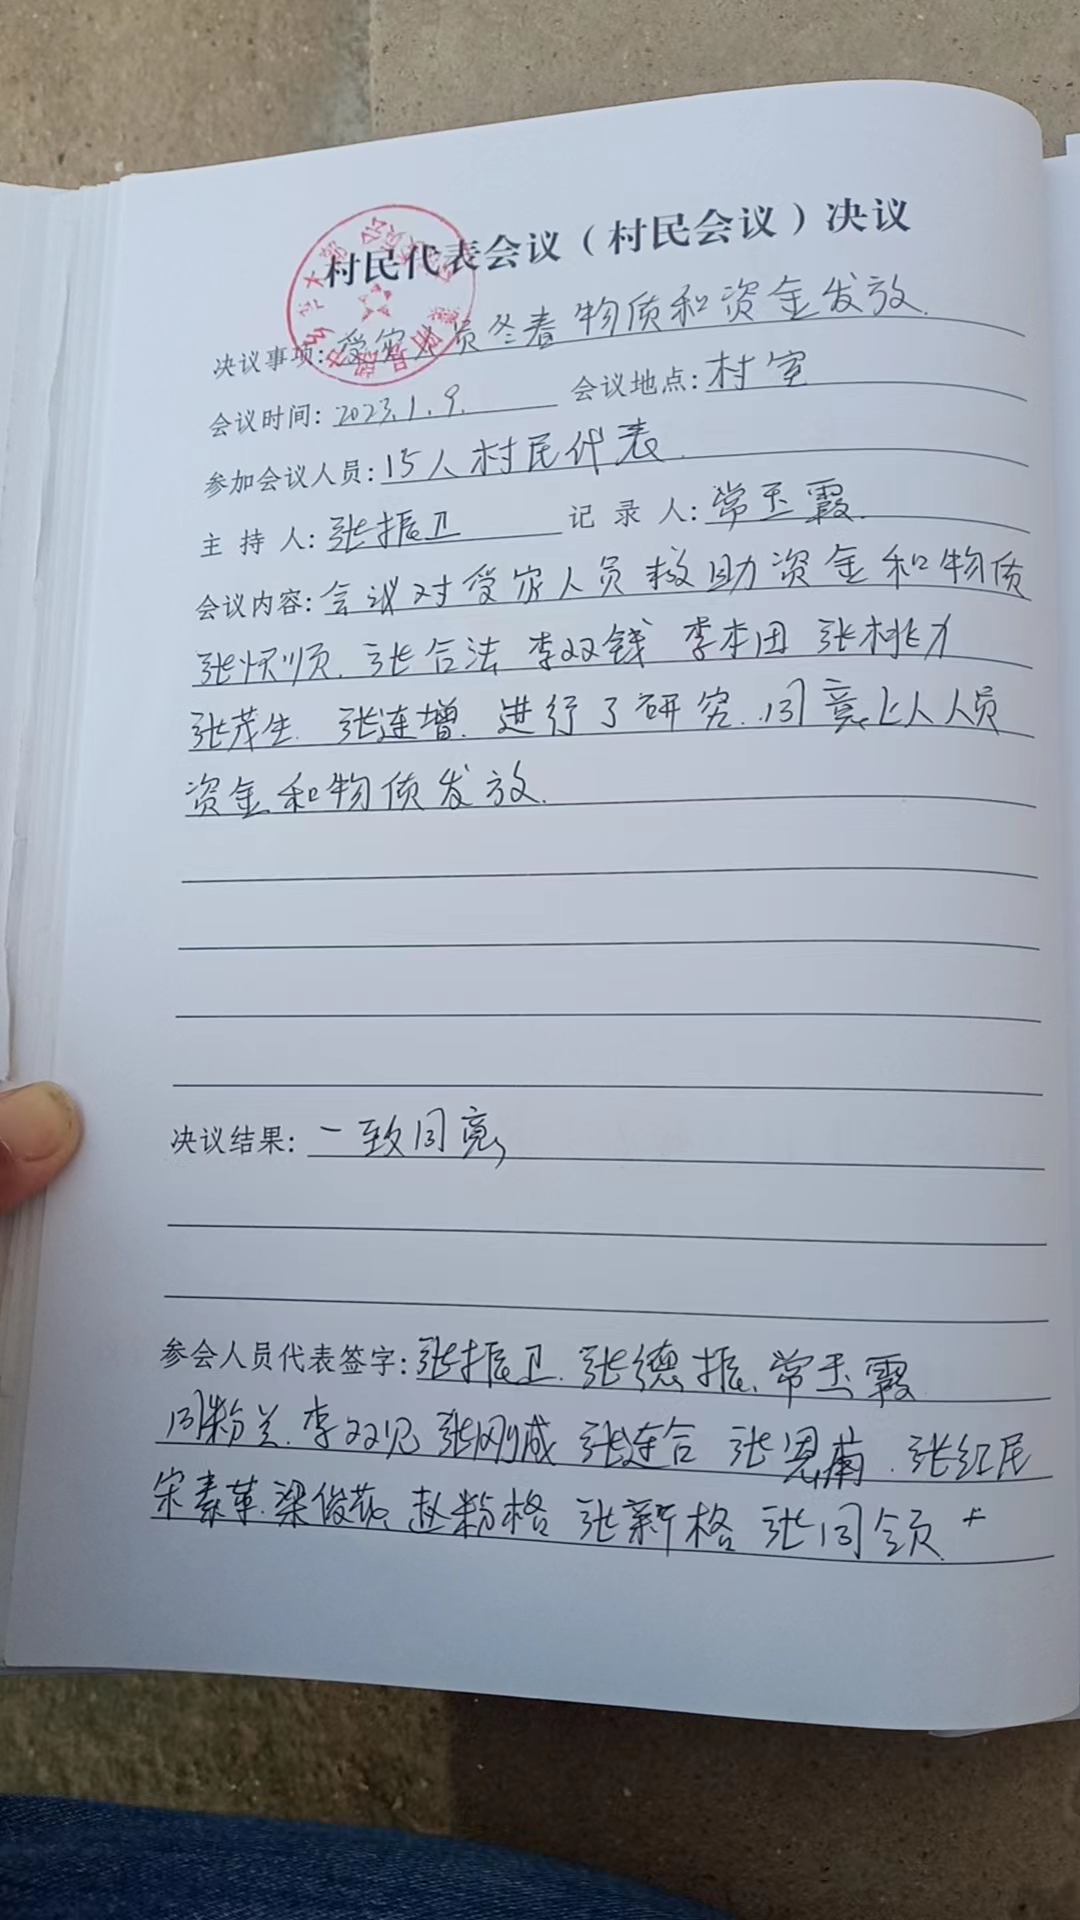 村民代表会议（村民会议）决议
决议事项: 受灾人员冬春物质和资金发放.
会议时间: 2023.1.9. 会议地点: 村室
参加会议人员: 15人村民代表.
主持人: 张振卫 记录人: 常玉霞.
会议内容: 会议对受灾人员救助资金和物质
张顺. 张合法 李双钱 李本田 张桃力
张茂生. 张连增. 进行了研究. 同意上人人员
资金和物质发放.
决议结果: 一致同意
参会人员代表签字: 张振卫. 张德振. 常玉霞
粉兰. 李双见 张刚成 张连合 张恩 . 张红民
宋素革. 梁俊 赵粉格 张新格 张同领